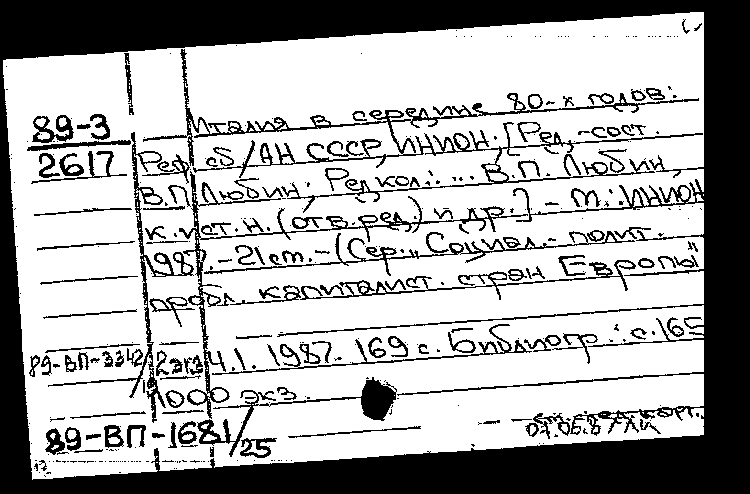 Италия в середине 80-х годов:
89-3
2617
Реф. сб/АН СССР, ИНИОН; [Ред.-сост.
В.П. Любин; Редкол.: ... В.П. Любин,
к.ист.н. (отв.ред.) и др.] - М.: ИНИОН
1987. - 21 см. - (Сер. „Социал.-полит.
пробл. капиталист. стран Европы"
89-ВП-3342/19 2экз Ч.1. 1987. 169 с. Библиогр.: с.165
1000 экз.
89-ВП-1681/25